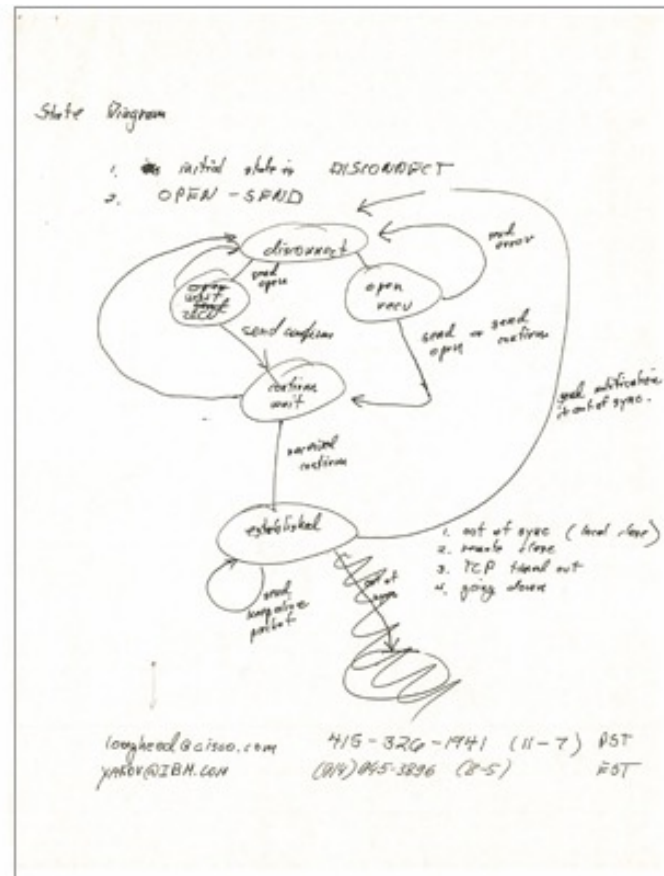 State Diagram
1. initial state is DISCONNECT
2. OPEN - SEND
disconnect
send
open
send
error
open
wait
open
recv
send confirm
send or send
open confirm
confirm
wait
send notification
if out of sync.
received
confirm
established
1. out of sync (local close)
2. remote close
3. TCP timed out
4. going down
send
keepalive
packet
out of
sync
lougheed@cisco.com 415-326-1941 (11-7) PST
YAKOV@IBM.COM (914) 945-3896 (8-5) EST